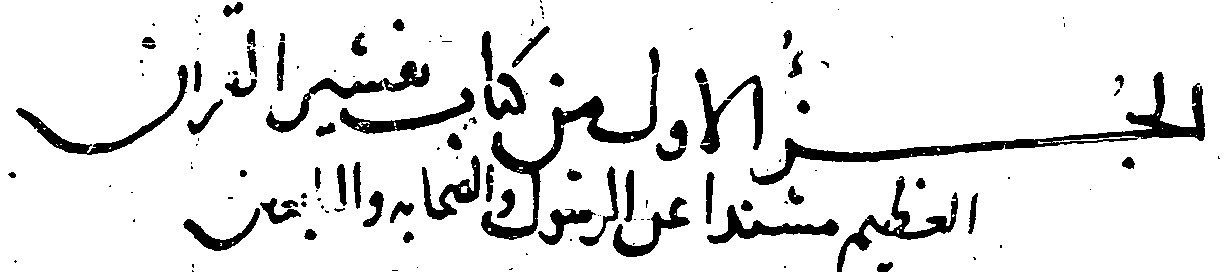 الجزء الاول من كتاب تفسير القران
العظيم مسندا عن الرسول والصحابه والتابعين